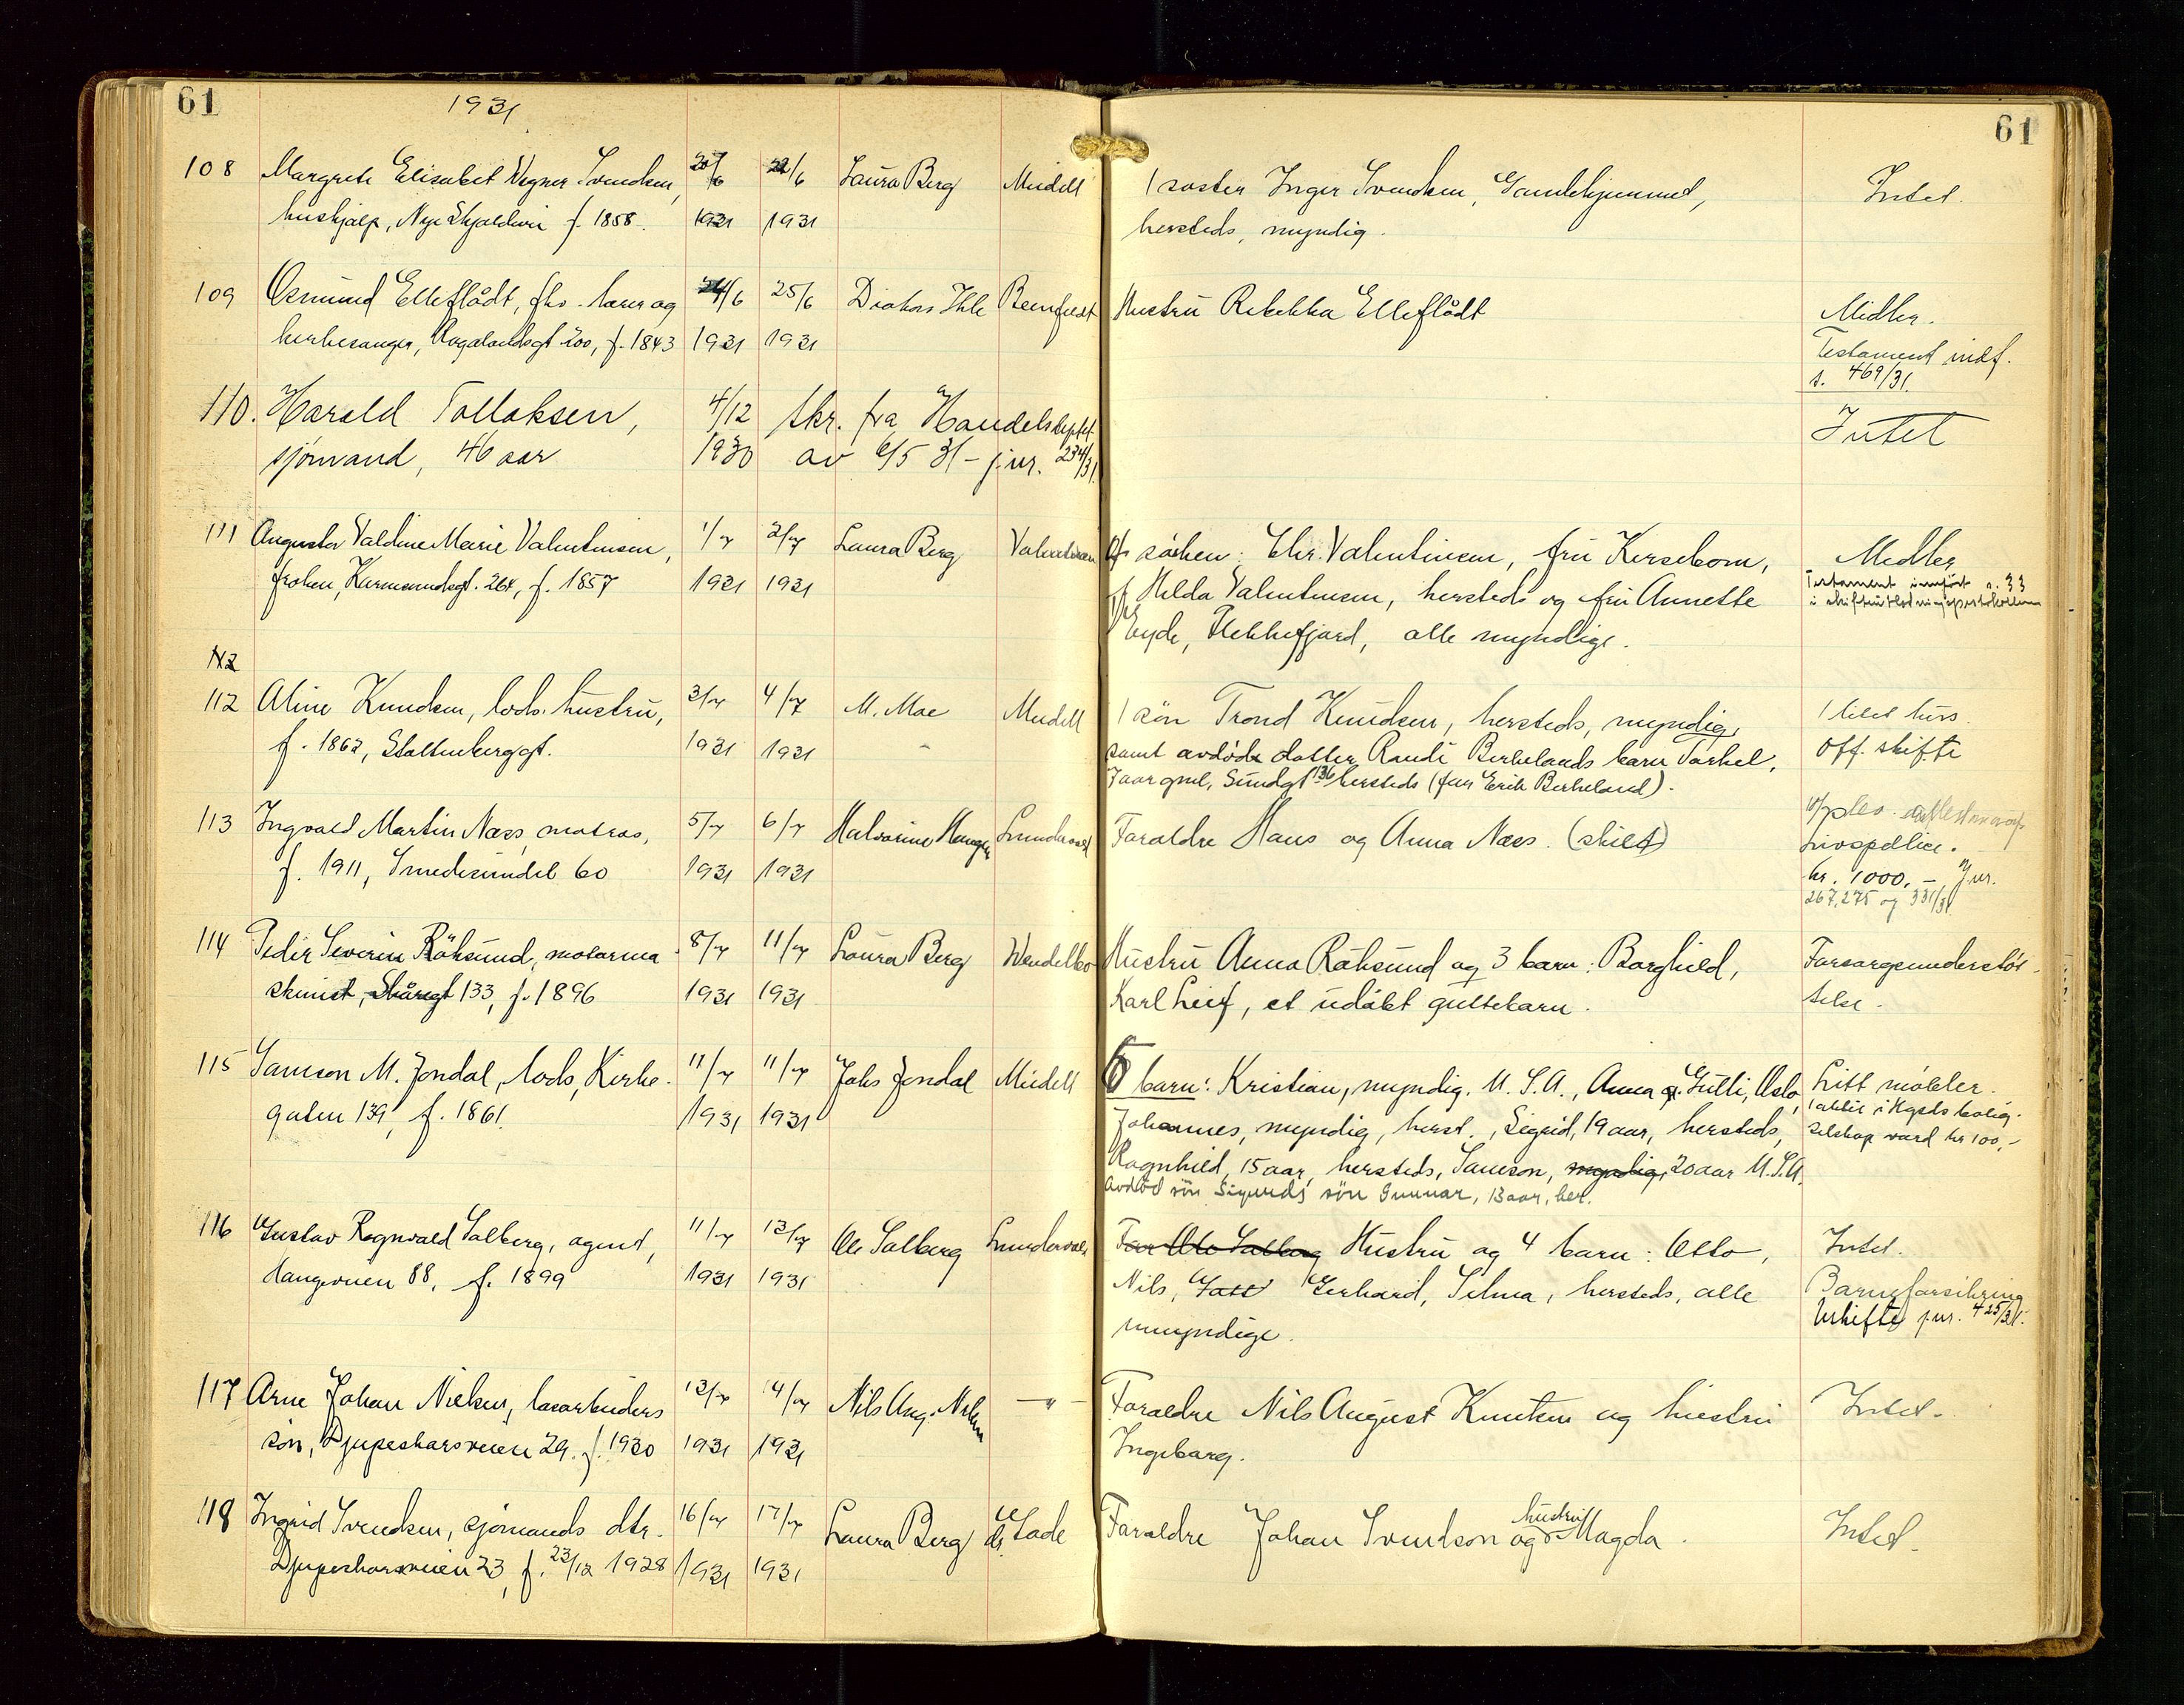 61
1931
61
108 Margrete Elisabet Wegner Svendsen, 20/6 22/6 Laura Berg Meidell 1 søster Inger Svendsen, Gamlehjemmet, Intet.
hushjælp, Nye Skjoldvei f. 1858. 1931 1931 hersteds, myndig.
109 Osmund Elleflådt, fhv. lærer og 24/6 25/6 Diakon Ihle Hustru Rebekka Elleflådt Midler.
kirkesanger, Rogalandsgt 200, f. 1843 1931 1931 Testament indf.
s. 469/31.
110. Harald Tollaksen, 4/12 skr. fra Handelsdeptet Intet
sjømand, 46 aar 1930 av 6/5 31 – jnr. 234/31.
111 Augusta Valdine Marie Valentinsen, 1/7 2/7 Laura Berg Valentinsen søsken: Chr. Valentinsen, fru Kersebom, Midler
frøken, Karmsundsgt. 264, f. 1857 1931 1931 Hilda Valentinsen, hersteds og fru Annette Testament innført s. 33
Eyde, Flekkefjord, alle myndige.
112
112 Aline Knudsen, lods. hustru, 3/7 4/7 M. Moe Meidell 1 søn Trond Knudsen, hersteds, myndig, 1 litet hus.
f. 1862, Stoltenberggt. 1931 1931 samt avdøde datter Randi Birkelands barn Torkel, Off. skifte
7 aar gml, Sundgt 136 hersteds (far Erik Birkeland).
113 Ingvald Martin Næss, matros, 5/7 6/7 Halvorine Hauge Lundervold Forældre Hans og Anna Næss. (skilt) Livspolice.
f. 1911, Smedesundet 60 1931 1931 kr. 1000,– Jnr.
267, 275 og 331/31
114 Peder Severin Röksund, motorma- 8/7 11/7 Laura Berg Wendelbo Hustru Anna Röksund og 3 barn: Borghild, Forsorgsunderstöt-
skinist, Skåregt 133, f. 1896 1931 1931 Karl Leif, et udöbt guttebarn. telse.
115 Samson M. Jondal, lods, Kirke- 11/7 11/7 Johs Jondal Meidell 6 barn: Kristian, myndig. U.S.A., Anna g. Gutti, Oslo, Litt møbler.
gaten 139, f. 1861. 1931 1931 Johannes, myndig, herst., Sigrid, 19 aar, hersteds, 1 aktie i Hgsds bolig-
Ragnhild, 15 aar, hersteds, Samson, myndig, 20 aar U.S.A. selskap værd kr 100,–
Avdöd sön Sigurds sön Gunnar, 13 aar, her.
116 Gustav Rognvald Salberg, agent, 11/7 13/7 Ole Salberg Lundervold Far Ole Salberg Hustru og 4 barn: Otto, Intet.
Haugeveien 88, f. 1899 1931 1931 Nils, Gerhard, Selma, hersteds, alle Barneforsikring
umyndige. Uskifte jnr. 425/31.
117 Arne Johan Nielsen, løsarbeiders 13/7 14/7 Nils Aug. Nilsen – " – Forældre Nils August Knutsen og hustru Intet.
søn, Djupeskarsveien 29. f. 1930 1931 1931 Ingeborg.
118 Ingrid Svendsen, sjømands dtr. 16/7 17/7 Laura Berg Forældre Johan Svendson og hustru Magda. Intet.
Djupeskarsveien 23, f. 23/12 1928 1931 1931